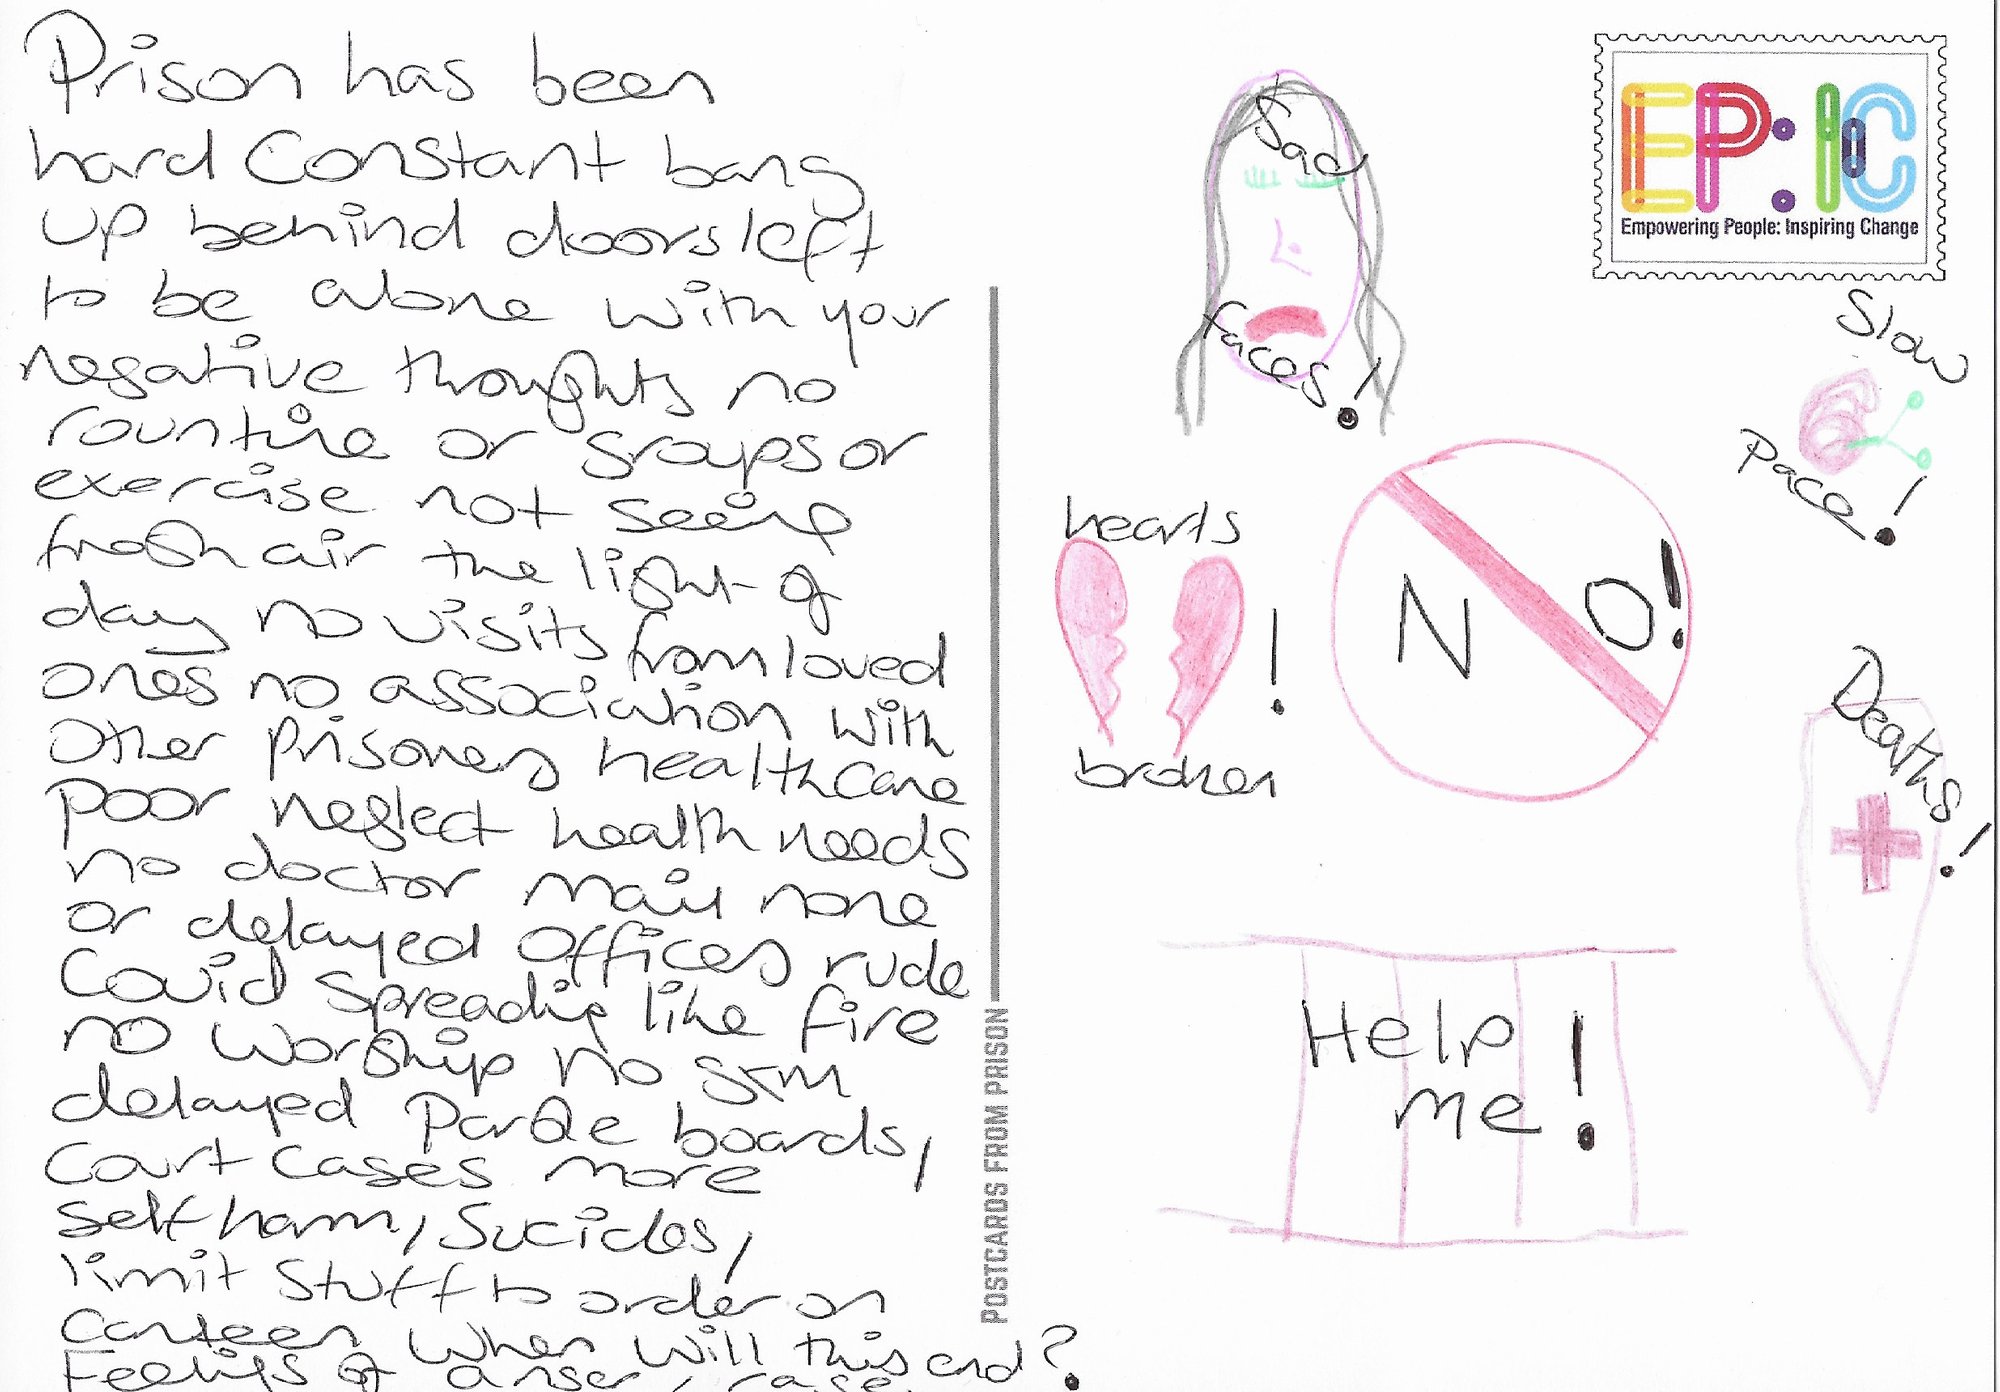 Prison has been
hard Constant bang
up behind doors left
to be alone with your
negative thoughts no
rountine or groups or
exercise not seeing
fresh air the light of
day no visits from loved
ones no association with
other prisoners healthcare
poor neglect health needs
no doctor mail none
or delayed offices rude
Covid spreading like fire
no worship no gym
delayed Parole boards,
Court cases more
self harm, Sucides,
limit stuff to order on
Canteen when will this end?
Feelings of anger,
POSTCARDS FROM PRISON
EP:IC
Empowering People: Inspiring Change
Sad
faces!
Slow
pace!
hearts
!
broken
NO!
Deaths!
Help
me!